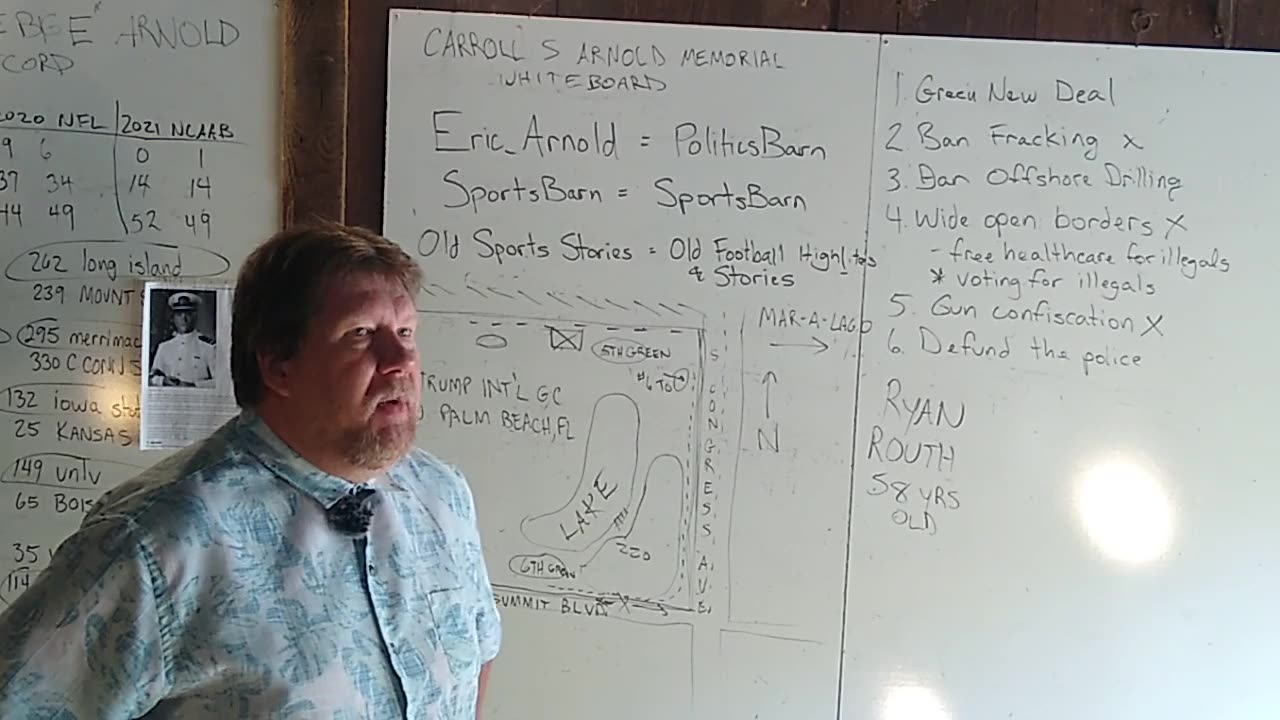 ARNOLD
CORD
2020 NFL 2021 NCAAB
9 6 0 1
37 34 14 14
44 49 52 49
262 long island
239 MOUNT
295 merrimac
330 C CONN S
132 iowa st
25 KANSAS
149 unlv
65 BOIS
35
114
CARROLL S ARNOLD MEMORIAL
WHITEBOARD
Eric_Arnold = PoliticsBarn
SportsBarn = SportsBarn
Old Sports Stories = Old Football Highlites
& Stories
5TH GREEN
#6 TEE
TRUMP INT'L GC
PALM BEACH, FL
LAKE
220
6TH GREEN
SUMMIT BLVD
S. CONGRESS AVE.
MAR-A-LAGO
N
1. Green New Deal
2 Ban Fracking x
3. Ban Offshore Drilling
4. Wide open borders X
- free healthcare for illegals
* voting for illegals
5. Gun confiscation X
6. Defund the police
RYAN
ROUTH
58 YRS
OLD